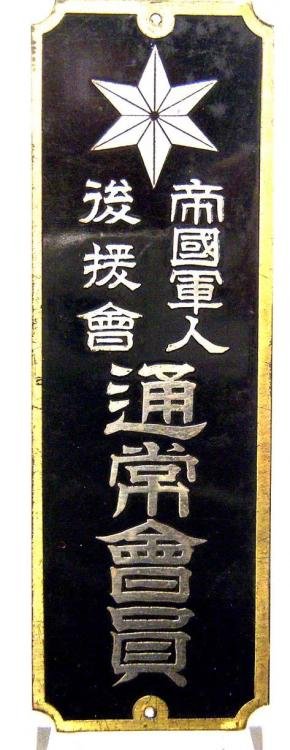 帝國軍人
後援會
通常會員